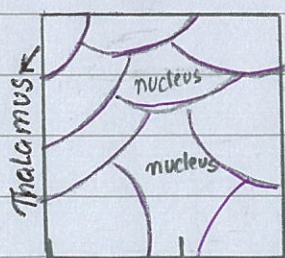 Thalamus
nucleus
nucleus